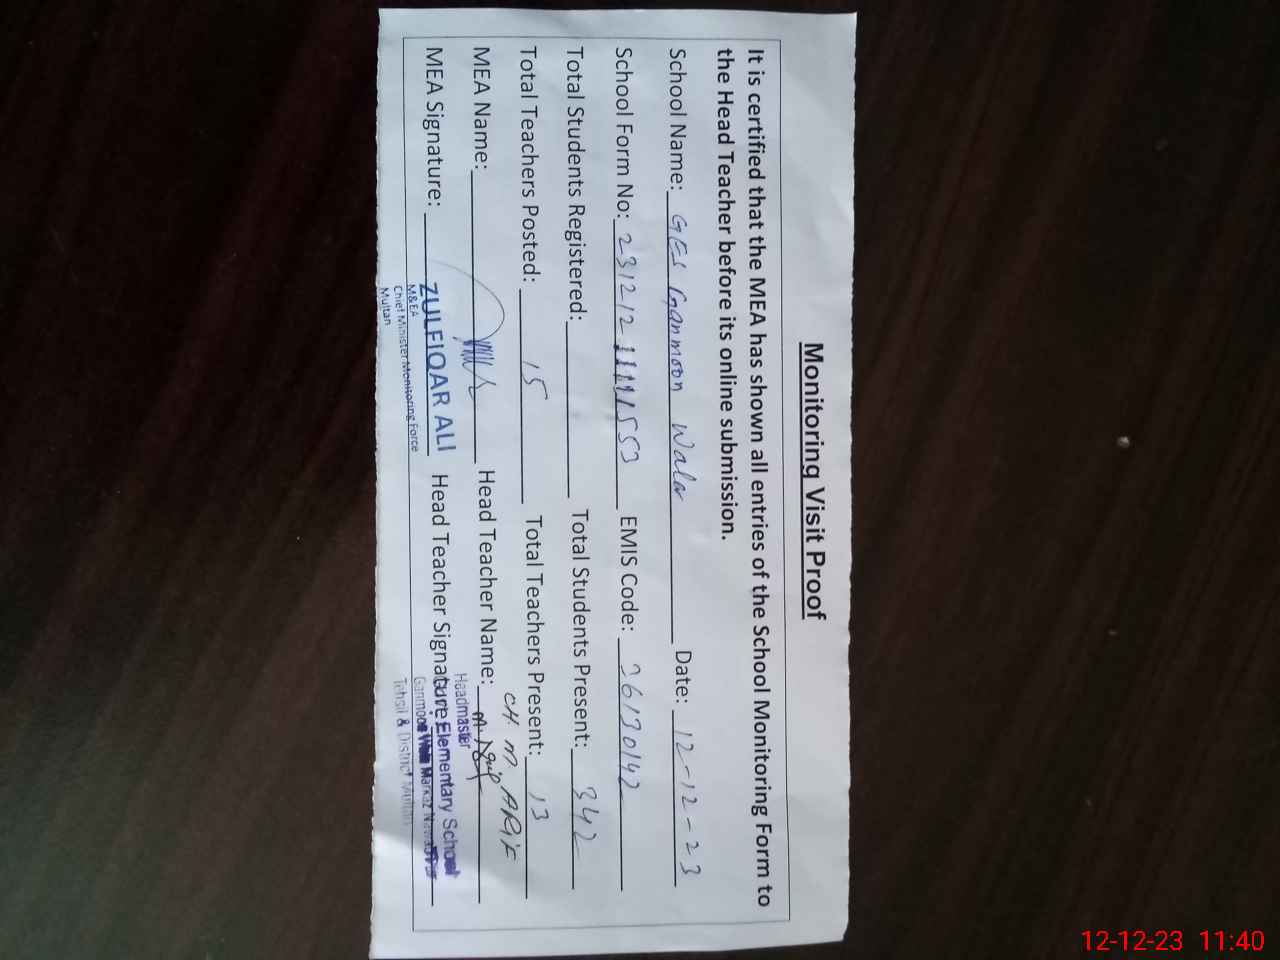 Monitoring Visit Proof
It is certified that the MEA has shown all entries of the School Monitoring Form to
the Head Teacher before its online submission.
School Name: GES Ganmoon Wala Date: 12-12-23
School Form No: 231212 11111553 EMIS Code: 36130142
Total Students Registered: Total Students Present: 342
Total Teachers Posted: 15 Total Teachers Present: 13
CH. M ARIF
MEA Name: Head Teacher Name:
MEA Signature: Head Teacher Signature
ZULFIQAR ALI
M&EA
Chief Minister Monitoring Force
Multan
Headmaster
Elementary School
Ganmoon Wala Markaz
Tehsil & District Multan
12-12-23 11:40